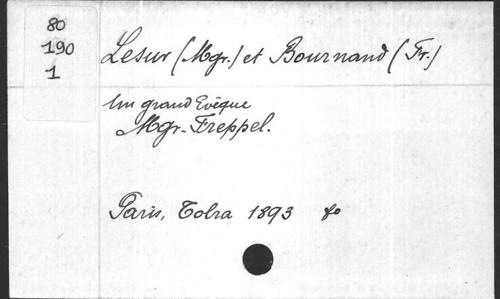 80
190
1
Lesur (Mgr.) et Bournand (Fr.)
Un grand Evêque
Mgr. Freppel.
Paris, Tolra 1893 fo